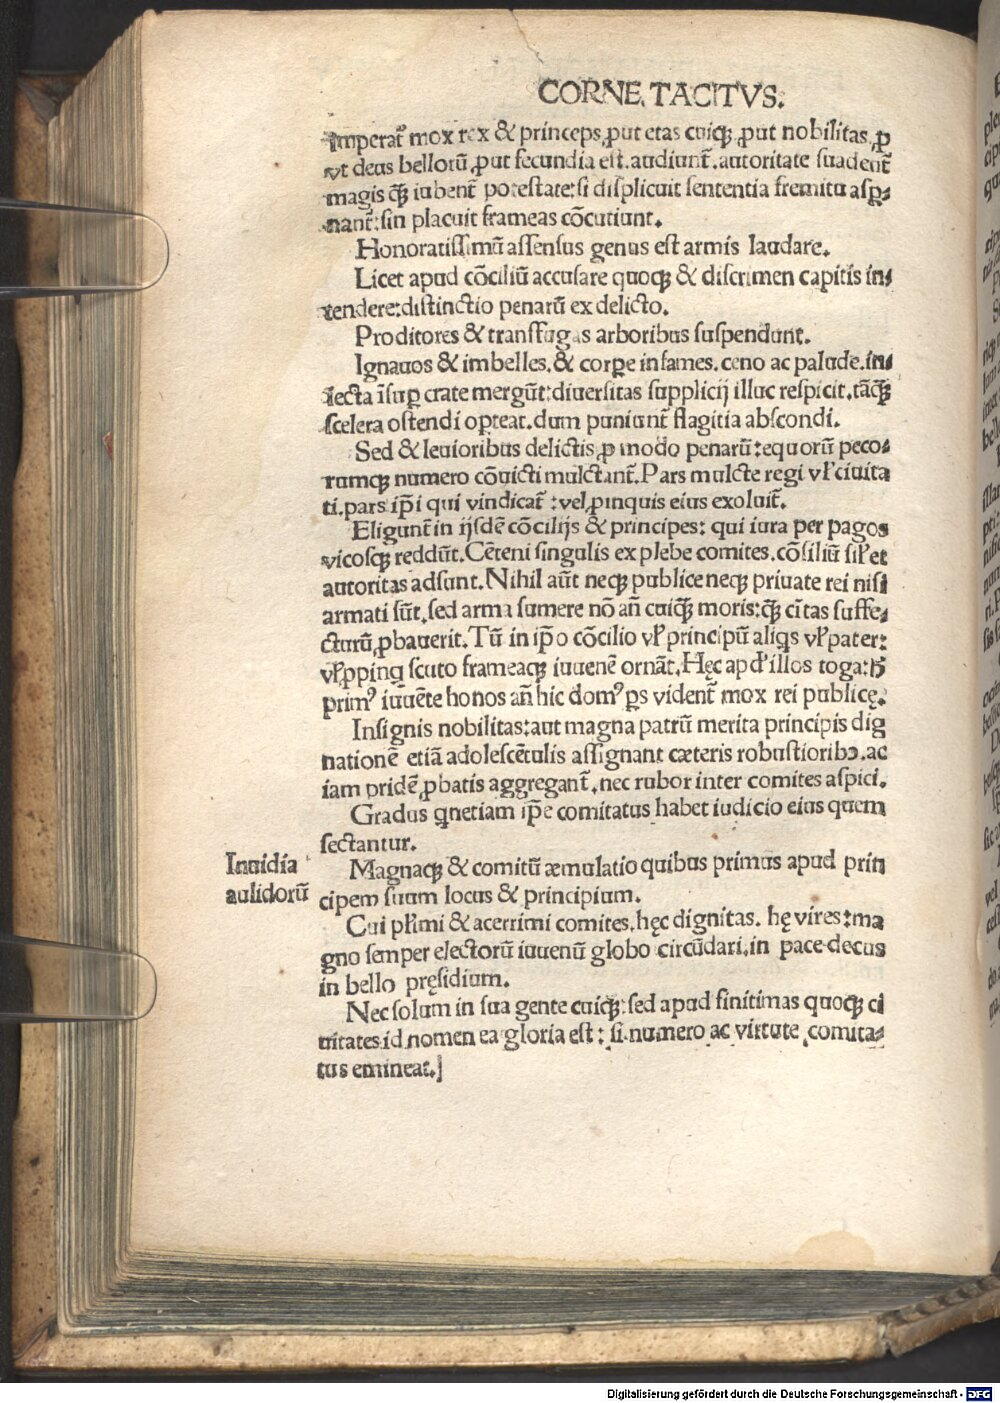 CORNE. TACITVS.
Imperat᷑ mox rex & princeps ꝓut etas cuiqꝫ ꝓut nobilitas, ꝓ
vt deus bellorū ꝓut fecundia est. audiunt᷑. autoritate suadent᷑
magis qꝫ̄ iubent᷑ potestate: si displicuit sententia fremitu asꝑ-
nant᷑: sin placuit frameas cōcutiunt.
Honoratissimū assensus genus est armis laudare.
Licet apud cōciliū accusare quoqꝫ & discrimen capitis in-
tendere: distinctio penarū ex delicto.
Proditores & transfugas arboribus suspendunt.
Ignauos & imbelles. & corꝑe infames. ceno ac palude. in-
iecta īsuꝑ crate mergūt: diuersitas supplicij illuc respicit. tāqꝫ̄
scelera ostendi oꝑteat. dum puniunt᷑ flagitia abscondi.
Sed & leuioribus delictis ꝓ modo penarū: equorū peco-
rumqꝫ numero cōuicti mulctant᷑. Pars mulcte regi vl̓ ciuita
ti. pars ip̄i qui vindicat᷑: vel ꝓpinquis eius exoluit᷑.
Eligunt᷑ in ijsdē cōcilijs & principes: qui iura per pagos
vicosqꝫ reddūt. Cēteni singulis ex plebe comites. cōsiliū sil̓ et
autoritas adsunt. Nihil aūt neqꝫ publice neqꝫ priuate rei nisi
armati sūt. sed arma sumere nō an̄ cuiqꝫ̄ moris: qꝫ̄ ci̅tas suffe-
cturū ꝓbauerit. Tū in ip̄o cōcilio vl̓ principū aliqs vl̓ pater:
vl̓ ꝓpinq scuto frameaqꝫ iuuenē ornāt. Hęc apd̓ illos toga: h̄
primꝰ iuuēte honos an̄ hic domꝰ ꝑs vident᷑ mox rei publicę.
Insignis nobilitas: aut magna patrū merita principis dig
nationē etiā adolescētulis assignant cæteris robustioribꝰ. ac
iam pridē ꝓbatis aggregant᷑. nec rubor inter comites aspici.
Gradus qnetiam ip̄e comitatus habet iudicio eius quem
sectantur.
Inuidia
aulidorū
Magnaqꝫ & comitū æmulatio quibus primus apud prin
cipem suum locus & principium.
Cui pl̓imi & acerrimi comites. hęc dignitas. hę vires: ma
gno semper electorū iuuenū globo circūdari. in pace decus
in bello pręsidium.
Nec solum in sua gente cuiqꝫ: sed apud finitimas quoqꝫ ci
uitates id nomen ea gloria est: si numero ac virtute comita-
tus emineat.]
Digitalisierung gefördert durch die Deutsche Forschungsgemeinschaft - DFG